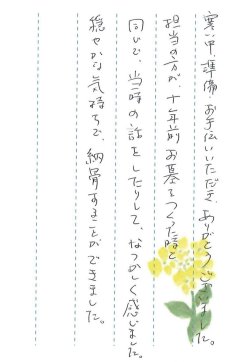 寒い中準備、お手伝いいただき、ありがとうございました。
担当の方が、十年前お墓をつくった時と
同じで、当時の話をしたりして、なつかしく感じました。
穏やかな気持ちで、納骨することができました。